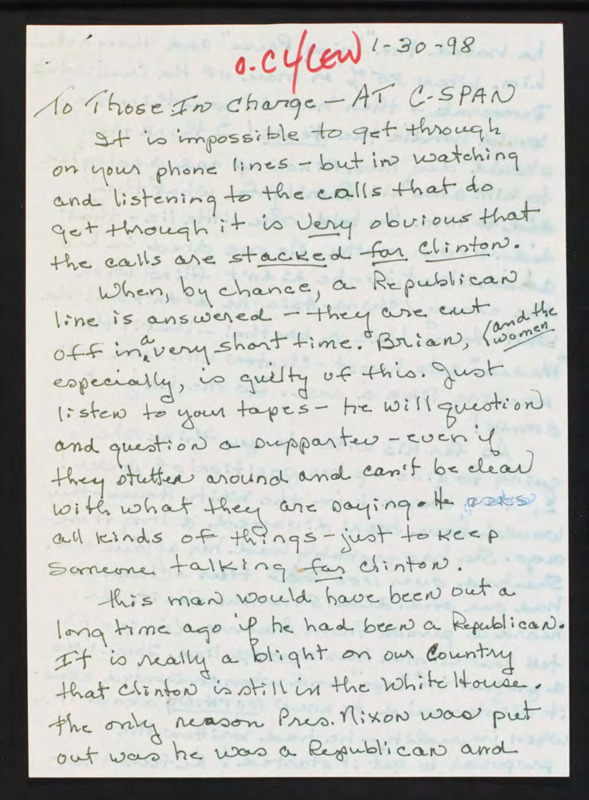 O.C4/LEW 1-30-98
To Those In Charge - AT C-SPAN
It is impossible to get through
on your phone lines - but in watching
and listening to the calls that do
get through it is very obvious that
the calls are stacked for Clinton.
When, by chance, a Republican
line is answered - they are cut
off in a very short time. Brian, (and the women
especially, is guilty of this. Just
listen to your tapes - he will question
and question a supporter - even if
they stutter around and can't be clear
with what they are saying. He asks
all kinds of things - just to keep
someone talking for Clinton.
This man would have been out a
long time ago if he had been a Republican.
It is really a blight on our Country
that Clinton is still in the White House.
The only reason Pres. Nixon was put
out was he was a Republican and